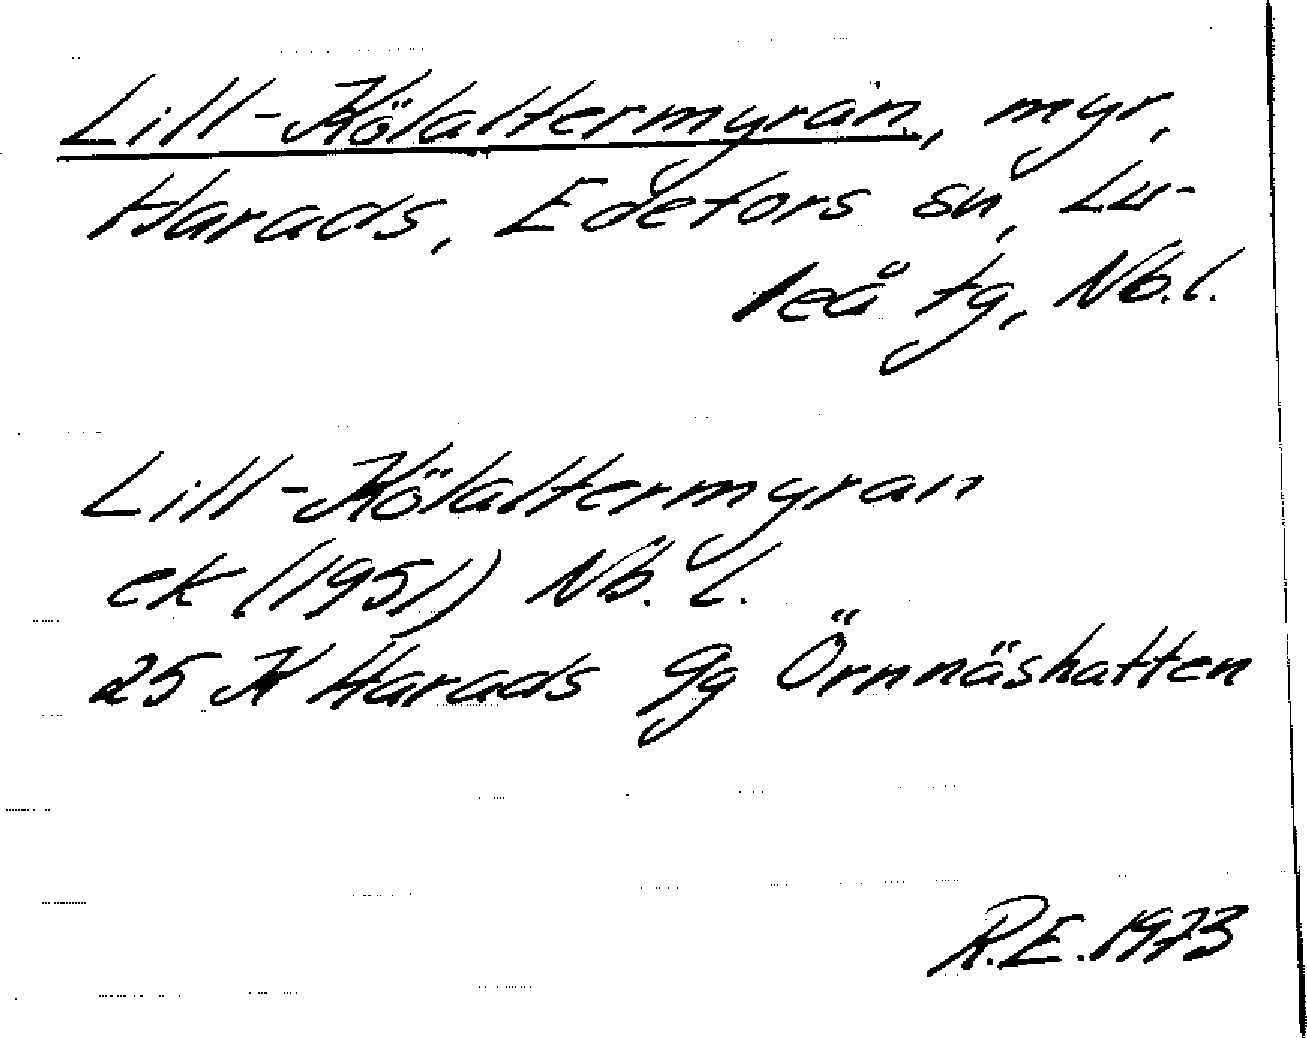 Lill-Kölaltermyran, myr,
Harads, Edefors sn, Lu-
leå tg, Nb.l.
Lill-Kölaltermyran
ek (1951) Nb. l.
25 K Harads 9g Örnnäshatten
R.E. 1973